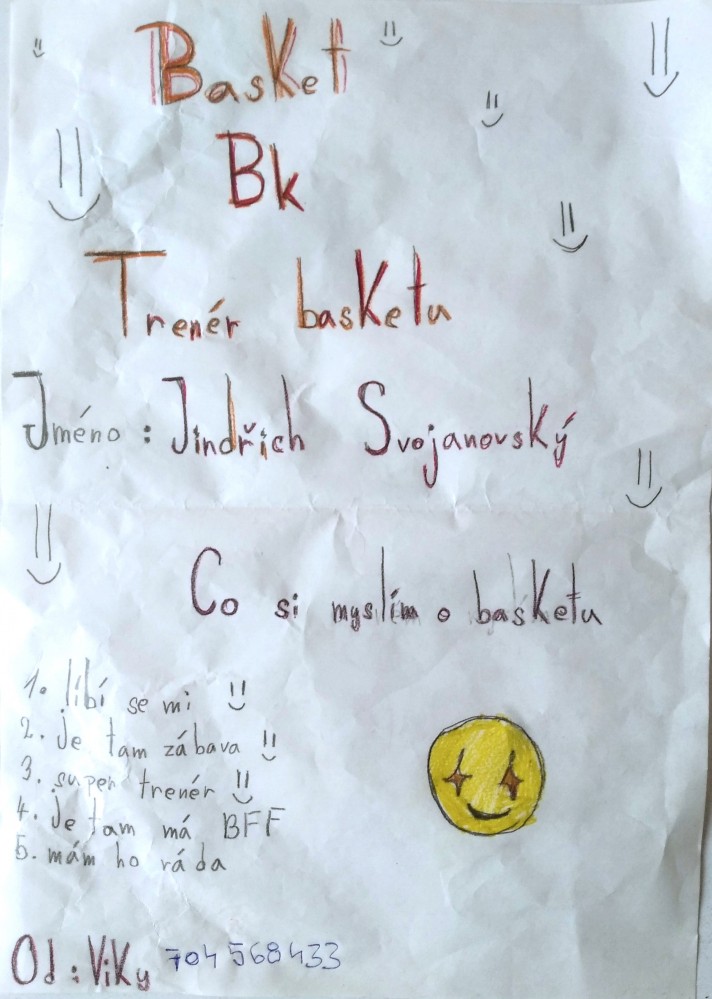 Basket
Bk
Trenér basketu
Jméno : Jindřich Svojanovský
Co si myslím o basketu
1. líbí se mi
2. Je tam zábava
3. super trenér
4. Je tam má BFF
5. mám ho ráda
Od : Viky 704 568 433